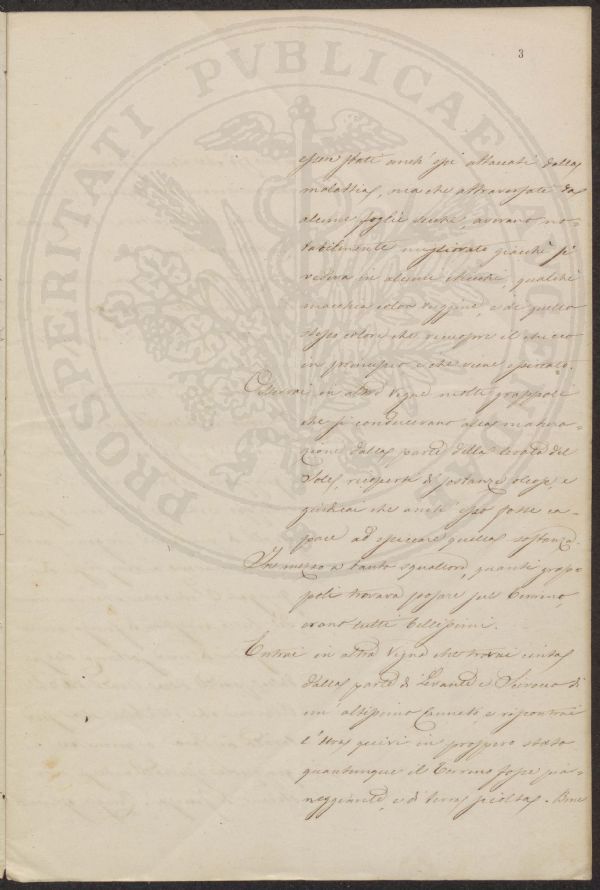 3
PROSPERITATI PVBLICAE
esser state anch'esse attaccate dalla
malattia, ma che attraversate da
alcune foglie secche, avevano no-
tabilmente migliorato giacchè si
vedeva in alcuni chicchi, qualche
macchia color ruggine, e di quello
stesso colore che ricuopre il chicco
in principio e che viene
Osservai in altra Vigna molti grappoli
che si conducevano alla matura-
zione dalla parte della levata del
Sole, ricoperti di sostanza e
giudicai che anch'esso fosse ca-
pace ad essiccare quella sostanza.
In mezzo a tanto squallore, quanti grap-
poli trovava posare sul terreno,
erano tutti bellissimi.
Entrai in altra Vigna che trovai cinta
dalla parte di Levante e Scirocco di
un'altissimo Canneto, e riscontrai
l'Uva quivi in prospero stato
quantunque il terreno fosse pia-
neggiante, e di terra sciolta. Bene